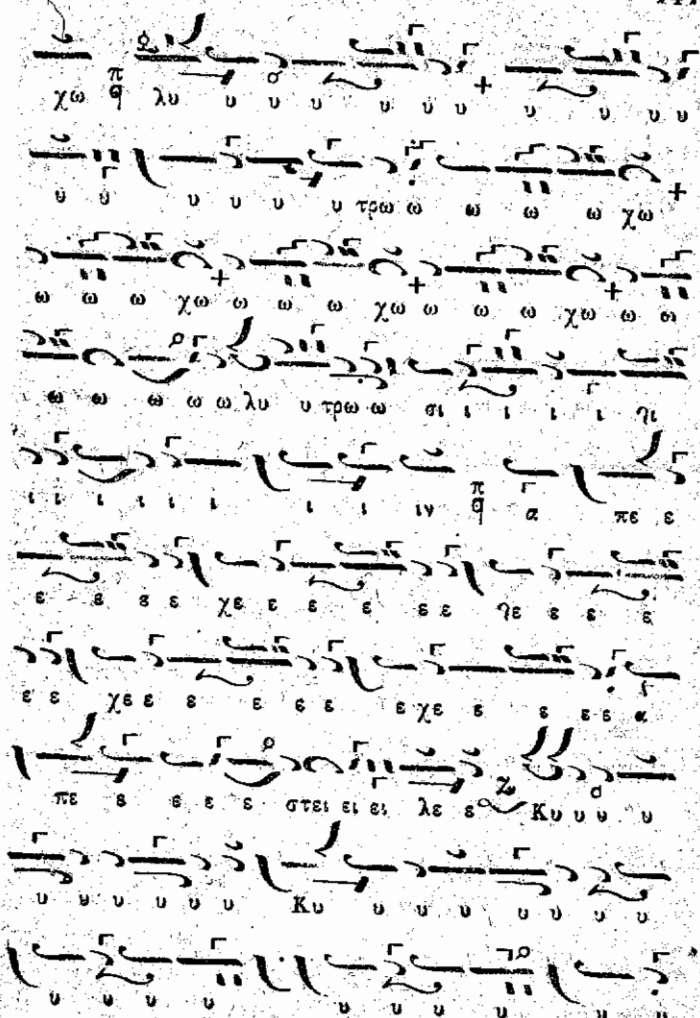 χω π ϥ λυ υ υ υ υ υ υ υ υ υ υ
υ υ υ υ υ υ τρω ω ω ω ω χω
ω ω ω χω ω ω ω χω ω ω ω χω ω ω
ω ω ω ω ω λυ υ τρω ω σι ι ι ι ι χι
ι ι ι ι ι ι ι ι ιν π ϥ α πε ε
ε ε ε ε χε ε ε ε ε ε χε ε ε ε
ε ε χε ε ε ε ε ε ε χε ε ε ε ε α
πε ε ε ε ε στει ει ει λε ε Κυ υ υ υ
υ υ υ υ υ υ Κυ υ υ υ υ υ υ υ
υ υ υ υ υ υ υ υ υ υ